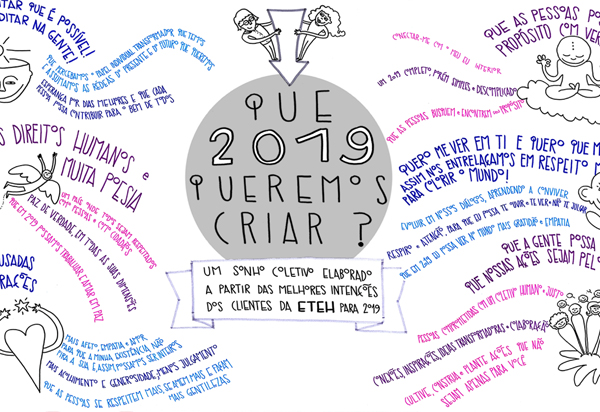 QUE
2019
QUEREMOS
CRIAR?
UM SONHO COLETIVO ELABORADO
A PARTIR DAS MELHORES INTENÇÕES
DOS CLIENTES DA ETEH PARA 2019
ITAR QUE É POSSÍVEL!
DITAR NA GENTE!
QUE PERCEBAMOS O PAPEL INDIVIDUAL TRANSFORMADOR QUE TEMOS
ASSUMAMOS AS RÉDEAS DO PRESENTE E DO FUTURO QUE QUEREMOS
ESPERANÇA POR DIAS MELHORES E QUE CADA
PESSOA POSSA CONTRIBUIR PARA O BEM DE TODOS
S DIREITOS HUMANOS E
MUITA POESIA
QUE TODOS SEJAM RESPEITADOS
COMO PESSOAS E CUIDADOS
PAZ DE VERDADE, EM TODAS AS SUAS DIMENSÕES
QUE EM 2019 POSSAMOS TRABALHAR E AMAR EM PAZ
OUSADAS
RAÇÕES
MAIS AFETO, EMPATIA E AMOR
PARA QUE A MINHA EXISTÊNCIA NÃO
FIRA A SUA E, ASSIM, POSSAMOS SER INTEIROS
MAIS ACOLHIMENTO E GENEROSIDADE, MENOS JULGAMENTO
QUE AS PESSOAS SE RESPEITEM MAIS, SE AMEM MAIS E FAÇAM
MAIS GENTILEZAS
QUE AS PESSOAS PO
PROPÓSITO COM VER
CONECTAR-ME COM O MEU EU INTERIOR
UM 2019 COMPLETO, PORÉM SIMPLES E DESCOMPLICADO
QUE AS PESSOAS BUSQUEM E ENCONTREM PROPÓSITO
QUERO ME VER EM TI E QUERO QUE M
ASSIM NOS ENTRELAÇAMOS EM RESPEITO M
PARA COLORIR O MUNDO!
EVOLUIR EM NOSSOS DIÁLOGOS, APRENDENDO A CONVIVER
RESPEITO E ATENÇÃO PARA QUE EU POSSA TE OUVIR E TE VER E NÃO TE JULGAR
QUE EM 2019 EU POSSA VER NO MUNDO MAIS GRATIDÃO E EMPATIA
QUE A GENTE POSSA
QUE NOSSAS AÇÕES SEJAM PELO
PESSOAS COMPROMETIDAS COM UM COLETIVO HUMANO E JUSTO
CONEXÕES, INSPIRAÇÕES, IDEIAS TRANSFORMADORAS E COLABORAÇÃO
CULTIVE, CONSTRUA E PLANTE AÇÕES QUE NÃO
SEJAM APENAS PARA VOCÊ